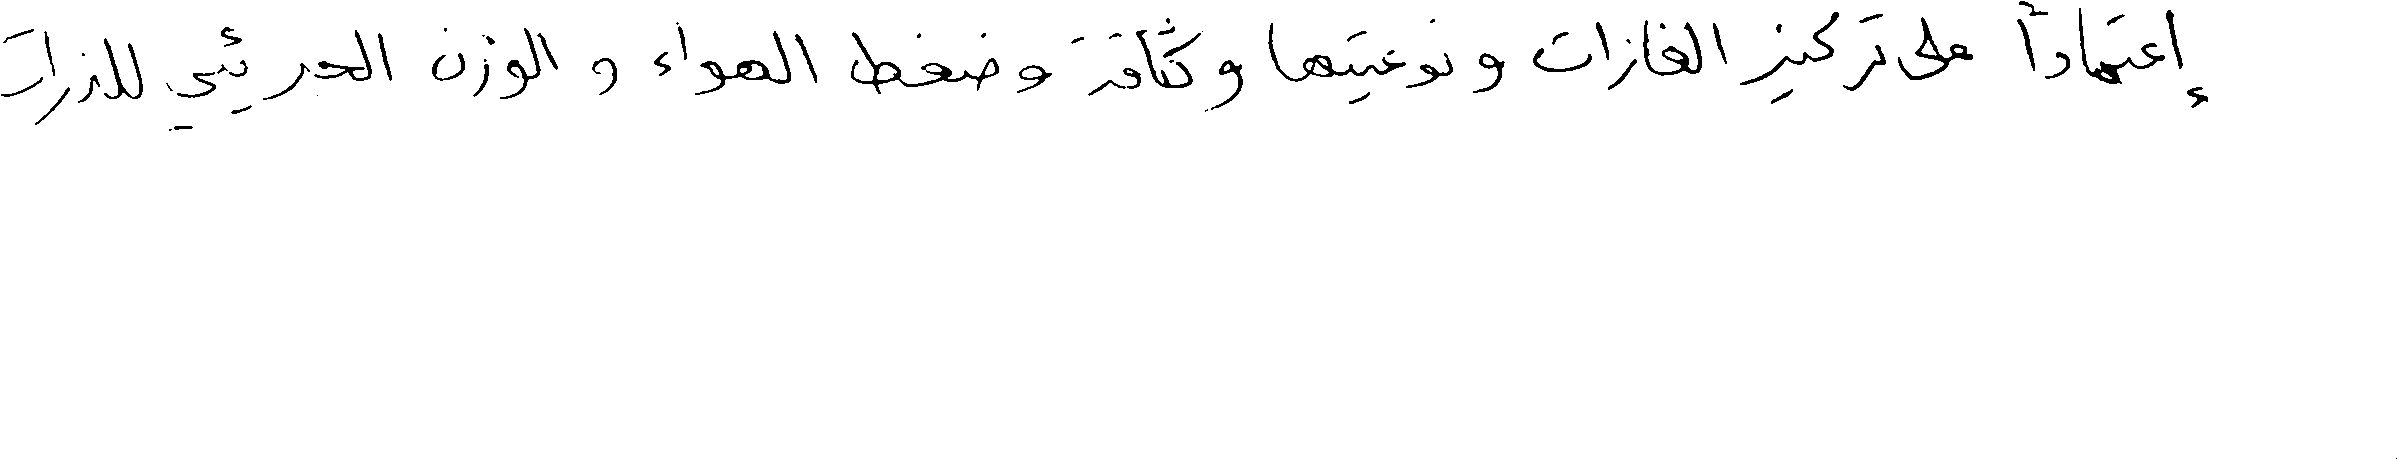 إعتماداً على تركيز الغازات ونوعيتها وكثافة وضغط الهواء والوزن الجزيئي للذرات